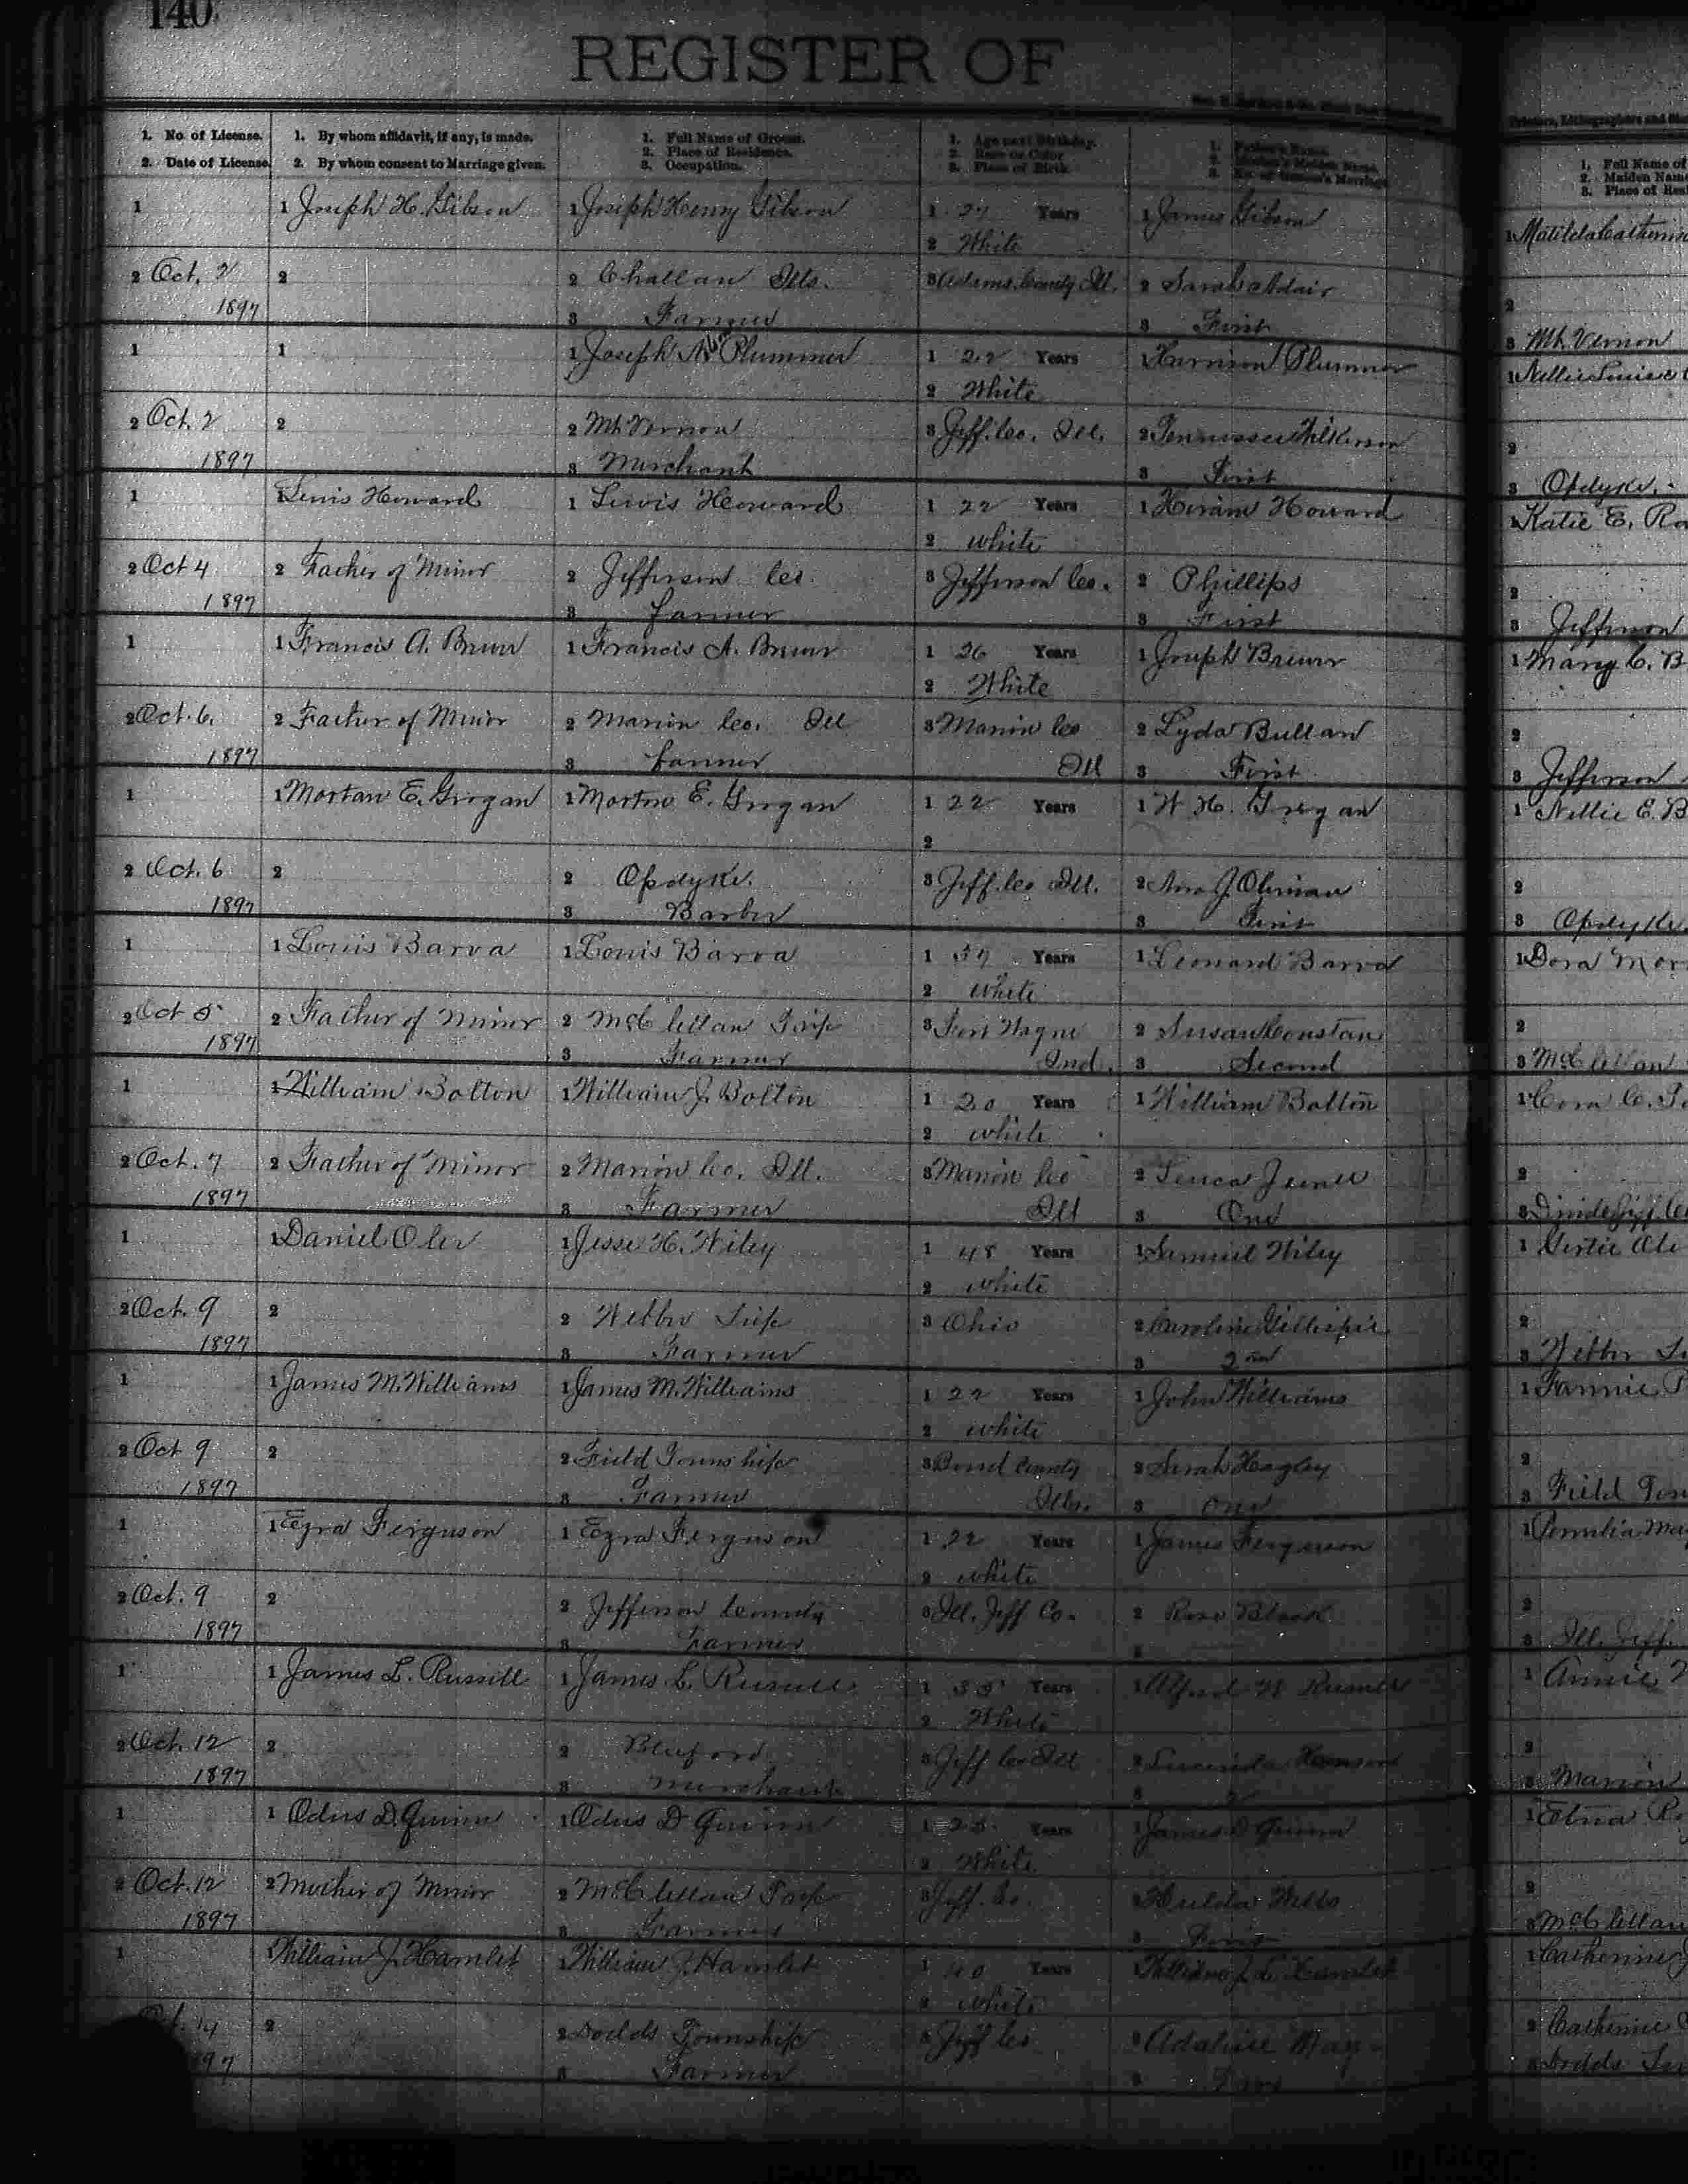 140
REGISTER OF
1. No. of License. 1. By whom affidavit, if any, is made. 1. Full Name of Groom. 1. Age next Birthday. 1. Father's Name. 1. Full Name of
2. Place of Residence. 2. Race or Color 2. Mother's Maiden Name. 2. Maiden Name
2. Date of License. 2. By whom consent to Marriage given. 3. Occupation. 3. Place of Birth 3. No. of Groom's Marriage 3. Place of Res
1 1 Joseph H. Gibson 1 Joseph Henry Gibson 1 27 Years 1 James Gibson 1 Matilda Catherine
2 White
2 Oct. 2 2 2 Challan Ills. 3 Adams County Ill. 2 Sarah Adair 2
1897 3 Farmer 3 First 3 Mt. Vernon
1 1 1 Joseph Plummer 1 22 Years 1 Harrison Plummer 1 Nellie Louise
2 White
2 Oct. 2 2 2 Mt Vernon 3 Jeff. Co. Ill. 2 Tennessee 2
1897 3 Merchant 3 First 3 Opdyke.
1 1 Lewis Howard 1 Lewis Howard 1 22 Years 1 Hiram Howard 1 Katie E. Ro
2 white
2 Oct 4 2 Father of Minor 2 Jefferson Co. 3 Jefferson Co. 2 Phillips 2
1897 3 farmer 3 First 3 Jefferson
1 1 Francis A. Brewer 1 Francis A. Brewer 1 26 Years 1 Joseph Brewer 1 Mary C. B
2 White
2 Oct. 6. 2 Father of Minor 2 Marion Co. Ill 3 Marion Co 2 Lyda Bullan 2
1897 3 farmer Ill 3 First 3 Jefferson
1 1 Mortan E. Grogan 1 Morton E. Grogan 1 22 Years 1 W. H. Grogan 1 Nellie E. B
2
2 Oct. 6 2 2 Opdyke. 3 Jeff. Co Ill. 2 Ann J. 2
1897 3 Barber 3 First 3 Opdyke
1 1 Louis Barva 1 Louis Barva 1 37 Years 1 Leonard Barva 1 Dora Mor
2 white
2 Oct 5 2 Father of Minor 2 McClellan Twp 3 Fort Wayne 2 Susan Constan 2
1897 3 Farmer Ind. 3 Second 3 McClellan
1 1 William Bolton 1 William J. Bolton 1 20 Years 1 William Bolton 1 Cora C.
2 white
2 Oct. 7 2 Father of Minor 2 Marion Co. Ill. 3 Marion Co 2 2
1897 3 Farmer Ill 3 One 3 Jeff. Co
1 1 Daniel Oler 1 Jesse H. Wiley 1 48 Years 1 Samuel Wiley 1 Gertie Ole
2 white
2 Oct. 9 2 2 Webber Twp 3 Ohio 2 Caroline Gillispie 2
1897 3 Farmer 3 2nd 3 Webber
1 1 James M. Williams 1 James M. Williams 1 22 Years 1 John Williams 1 Fannie
2 white
2 Oct 9 2 2 Field Township 3 Bond County 2 Sarah Hagley 2
1897 3 Farmer Ills. 3 One 3 Field Town
1 1 Ezra Ferguson 1 Ezra Ferguson 1 22 Years 1 James Ferguson 1 Permelia May
2 white
2 Oct. 9 2 2 Jefferson County 3 Ill. Jeff Co. 2 Rose Black 2
1897 3 Farmer 3 3 Ill. Jeff.
1 1 James L. Russell 1 James L. Russell 1 35 Years 1 Alfred Russell 1 Annie
2 White
2 Oct. 12 2 2 Bluford 3 Jeff Co Ill 2 Lucinda 2
1897 3 Merchant 3 2 3 Marion
1 1 Odus D. Quinn 1 Odus D Quinn 1 23 Years 1 James D Quinn 1 Etna
2 White
2 Oct. 12 2 Mother of Minor 2 McClellan Twp 3 Jeff. Co. 2 Hulda 2
1897 3 Farmer 3 First 3 McClellan
1 1 William J. Hamlet 1 William J. Hamlet 1 40 Years 1 William J. L. Hamlet 1 Catherine
2 white
14 2 2 Dodds Township 3 Jeff Co 2 Adaline May 2 Catherine
97 3 Farmer 3 3 Dodds